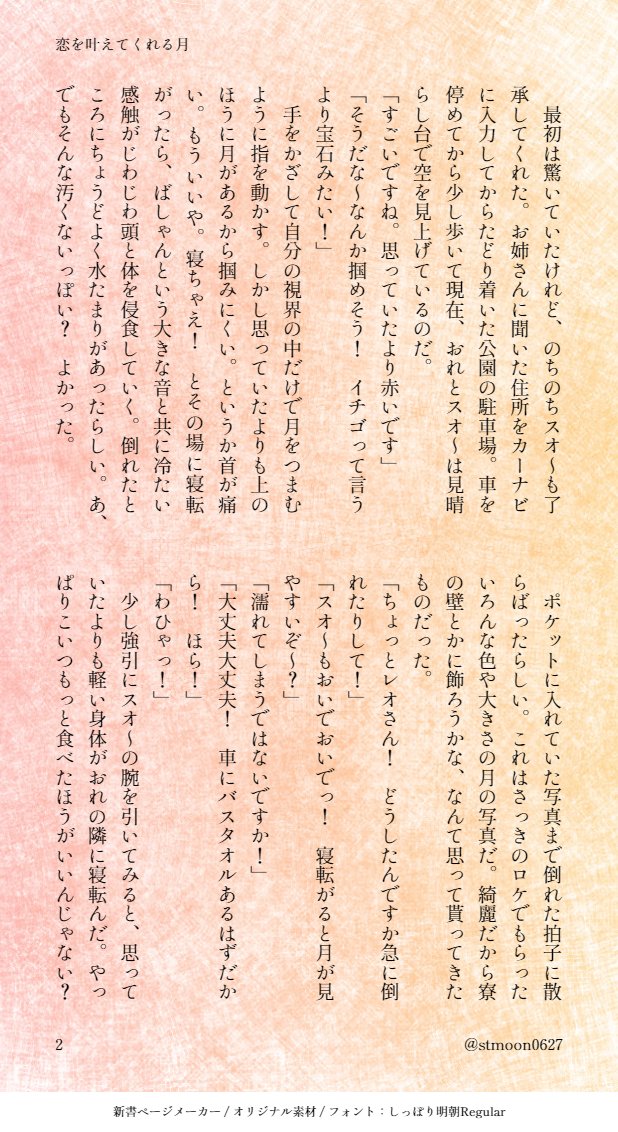 恋を叶えてくれる月
　最初は驚いていたけれど、のちのちスオ～も了
承してくれた。お姉さんに聞いた住所をカーナビ
に入力してからたどり着いた公園の駐車場。車を
停めてから少し歩いて現在、おれとスオ～は見晴
らし台で空を見上げているのだ。
「すごいですね。思っていたより赤いです」
「そうだな～なんか掴めそう！　イチゴって言う
より宝石みたい！」
　手をかざして自分の視界の中だけで月をつまむ
ように指を動かす。しかし思っていたよりも上の
ほうに月があるから掴みにくい。というか首が痛
い。もういいや。寝ちゃえ！　とその場に寝転
がったら、ばしゃんという大きな音と共に冷たい
感触がじわじわ頭と体を侵食していく。倒れたと
ころにちょうどよく水たまりがあったらしい。あ、
でもそんな汚くないっぽい？　よかった。
　ポケットに入れていた写真まで倒れた拍子に散
らばったらしい。これはさっきのロケでもらった
いろんな色や大きさの月の写真だ。綺麗だから寮
の壁とかに飾ろうかな、なんて思って貰ってきた
ものだった。
「ちょっとレオさん！　どうしたんですか急に倒
れたりして！」
「スオ～もおいでおいでっ！　寝転がると月が見
やすいぞ～？」
「濡れてしまうではないですか！」
「大丈夫大丈夫！　車にバスタオルあるはずだか
ら！　ほら！」
「わひゃっ！」
　少し強引にスオ～の腕を引いてみると、思って
いたよりも軽い身体がおれの隣に寝転んだ。やっ
ぱりこいつもっと食べたほうがいいんじゃない？
2
@stmoon0627
新書ページメーカー / オリジナル素材 / フォント：しっぽり明朝Regular